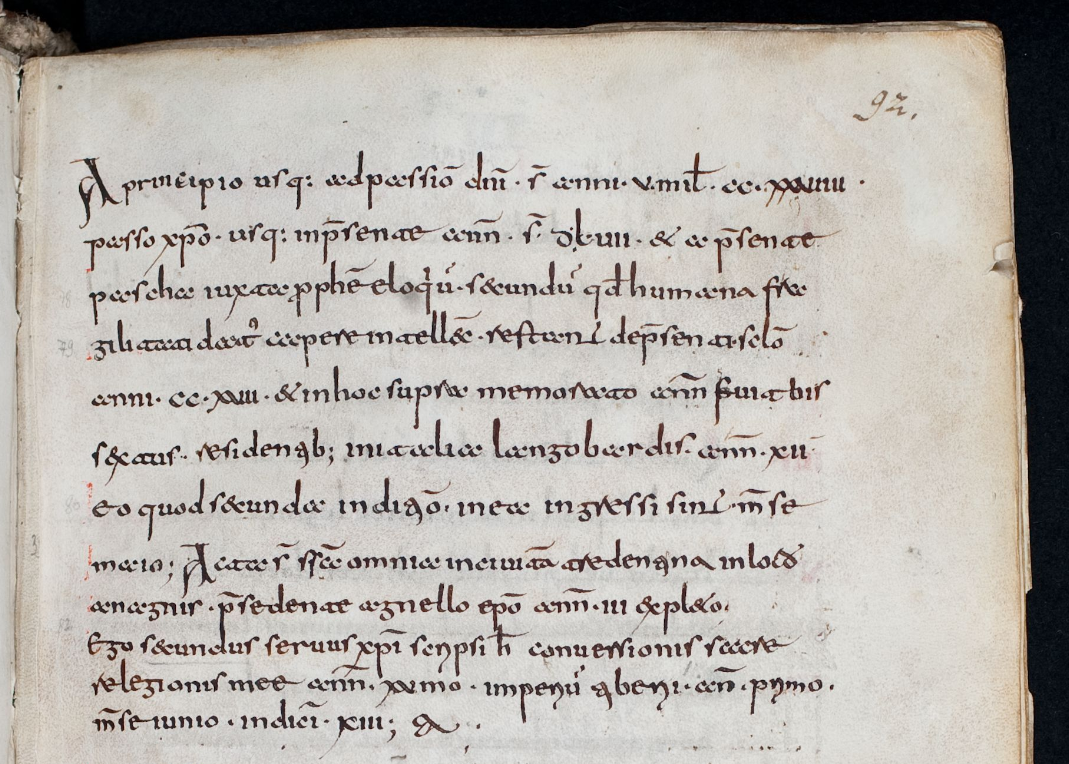 92.
A principio usq: ad passio͞ dn͞i · s͞t anni · v.mil͞ · cc · xxviiii ·
passo xp͞o · usq: inp͞sente ann͞ · s͞t · dlviii · & a p͞sente
pascha iuxta pphe͞ eloqiu͞ · secundu͞ qd͞ humana fra
gilitati datu͞r capere intellec · restant͞ dep͞senti sclo͞
anni · cc · xxiii · & inhoc supra memorato ann͞ fuit bis
sextus · residentib; initalia langobardis · ann͞ · xii
Eo quod secunda indictio͞ · inea ingressi sint · m͞se
maio; Acta s͞t ss͞ca omnia inciuita͞ tredentina inloco͞
anagnis · p͞sedente agnello ep͞o ann͞ · iii expleto.
Ego secundus servus xp͞i scripsi h͞ conversionis sacre
relegionis mee ann͞ · xvmo · imperiu͞ tiberii · an͞n · primo ·
m͞se iunio · indict͞ · xiii;